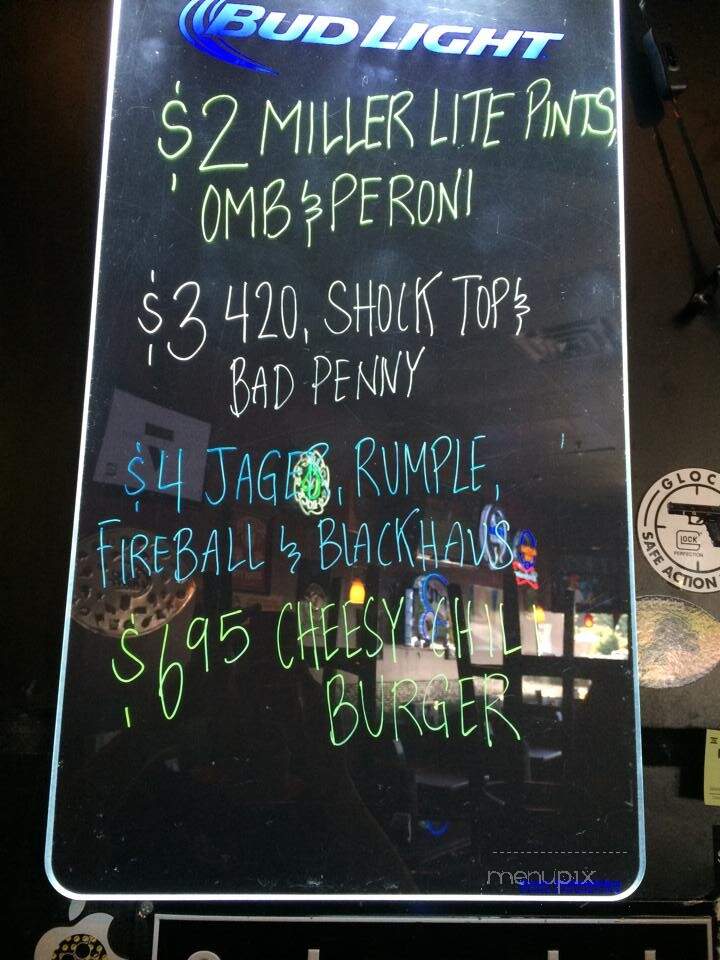 BUD LIGHT
$2 MILLER LITE PINTS,
OMB & PERONI
$3 420, SHOCK TOP &
BAD PENNY
$4 JAGER, RUMPLE,
FIREBALL & BLACKHAUS
$6.95 CHEESY CHILI
BURGER
GLOCK
PERFECTION
SAFE ACTION
menupix